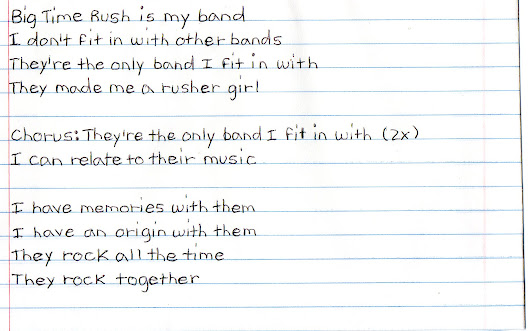 Big Time Rush is my band
I don't fit in with other bands
They're the only band I fit in with
They made me a rusher girl
Chorus: They're the only band I fit in with (2x)
I can relate to their music
I have memories with them
I have an origin with them
They rock all the time
They rock together